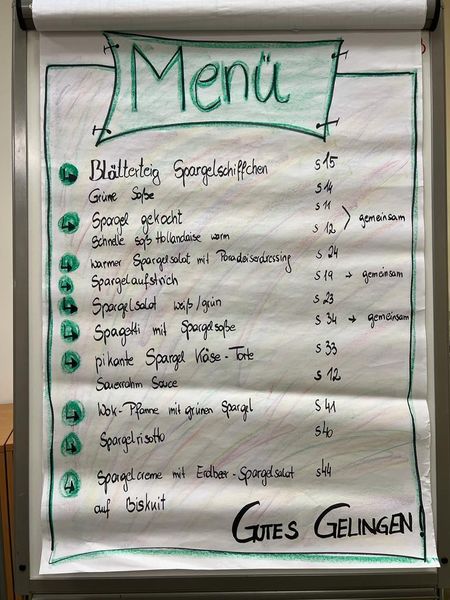 Menü
Blätterteig Spargelschiffchen S 15
Grüne Soße S 14
Spargel gekocht S 11
Schnelle soß Hollandaise warm S 12 gemeinsam
warmer Spargelsalat mit Paradeiserdressing S 24
Spargelaufstrich S 19 → gemeinsam
Spargelsalat weiß/grün S 23
Spagetti mit Spargelsoße S 34 → gemeinsam
pikante Spargel Käse-Torte S 33
Sauerrahm Sauce S 12
Wok-Pfanne mit grünen Spargel S 41
Spargelrisotto S 40
Spargelcreme mit Erdbeer-Spargelsalat S 44
auf Biskuit
GUTES GELINGEN!